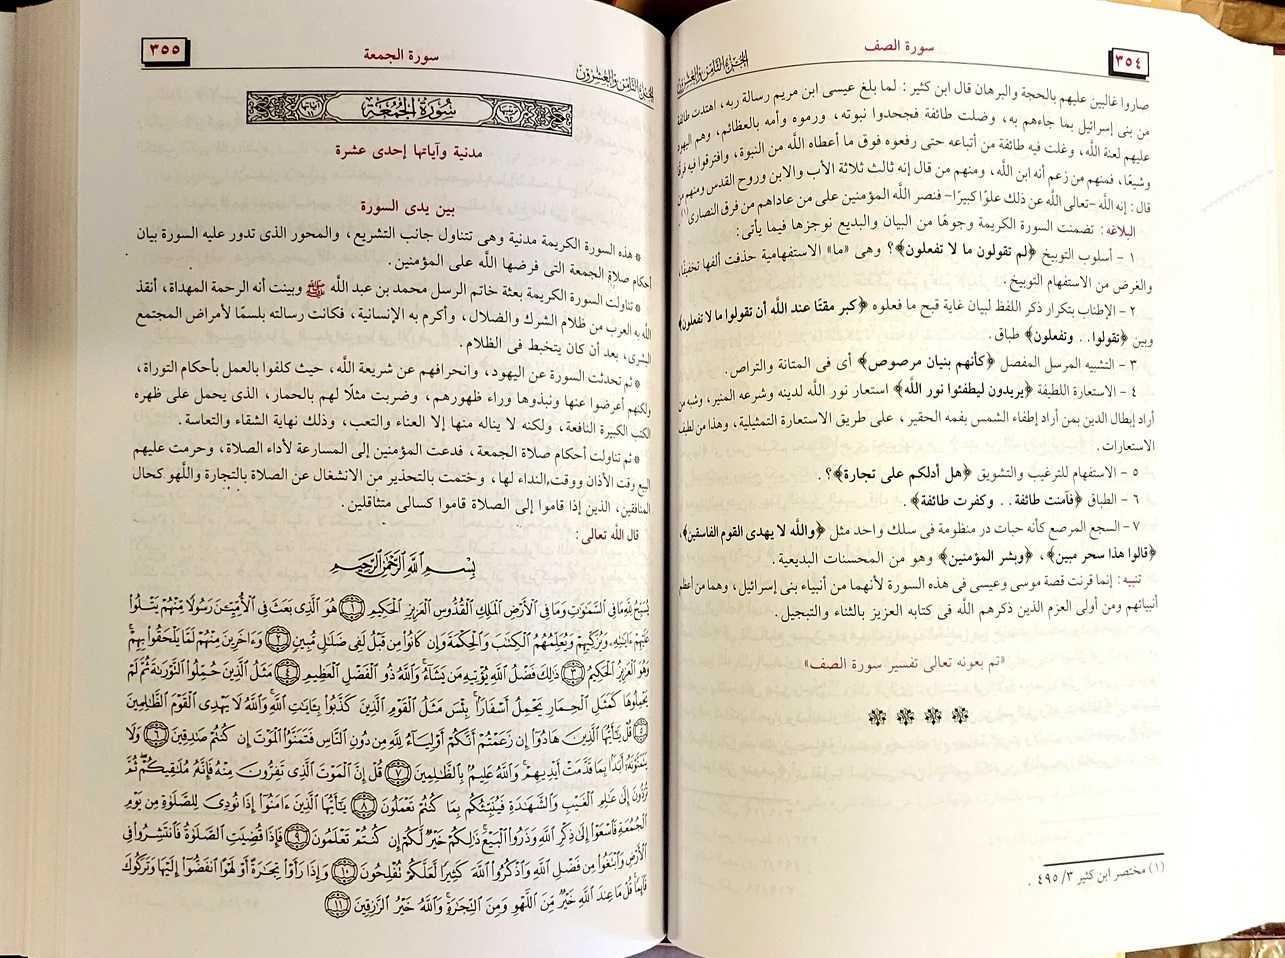 ٣٥٤
سورة الصف
الجزء الثامن والعشرون
صاروا غالبين عليهم بالحجة والبرهان قال ابن كثير : لما بلغ عيسى ابن مريم رسالة ربه، اهتدت طائفة
من بنى إسرائيل بما جاءهم به، وضلت طائفة فجحدوا نبوته، ورموه وأمه بالعظائم، وهم اليهود
عليهم لعنة الله، وغلت فيه طائفة من أتباعه حتى رفعوه فوق ما أعطاه الله من النبوة، وافترقوا فيه فرقًا
وشيعًا، فمنهم من زعم أنه ابن الله، ومنهم من قال إنه ثالث ثلاثة الأب والابن وروح القدس ومنهم من
قال : إنه الله –تعالى الله عن ذلك علوًا كبيرًا– فنصر الله المؤمنين على من عاداهم من فرق النصارى (١).
البلاغه : تضمنت السورة الكريمة وجوهًا من البيان والبديع نوجزها فيما يأتى :
١ – أسلوب التوبيخ ﴿لم تقولون ما لا تفعلون﴾؟ وهى «ما» الاستفهامية حذفت ألفها تخفيفًا،
والغرض من الاستفهام التوبيخ .
٢ – الإطناب بتكرار ذكر اللفظ لبيان غاية قبح ما فعلوه ﴿كبر مقتًا عند الله أن تقولوا ما لا تفعلون﴾
وبين ﴿تقولوا. . وتفعلون﴾ طباق.
٣ – التشبيه المرسل المفصل ﴿كأنهم بنيان مرصوص﴾ أى فى المتانة والتراص.
٤ – الاستعارة اللطيفة ﴿يريدون ليطفئوا نور الله﴾ استعار نور الله لدينه وشرعه المنير، وشبه من
أراد إبطال الدين بمن أراد إطفاء الشمس بفمه الحقير، على طريق الاستعارة التمثيلية، وهذا من لطيف
الاستعارات.
٥ – الاستفهام للترغيب والتشويق ﴿هل أدلكم على تجارة﴾؟ .
٦ – الطباق ﴿فآمنت طائفة. . وكفرت طائفة﴾ .
٧ – السجع المرصع كأنه حبات در منظومة فى سلك واحد مثل ﴿والله لا يهدى القوم الفاسقين﴾،
﴿قالوا هذا سحر مبين﴾، ﴿وبشر المؤمنين﴾ وهو من المحسنات البديعية.
تنبيه : إنما قرنت قصة موسى وعيسى فى هذه السورة لأنهما من أنبياء بنى إسرائيل، وهما من أعظم
أنبيائهم ومن أولى العزم الذين ذكرهم الله فى كتابه العزيز بالثناء والتبجيل.
«تم بعونه تعالى تفسير سورة الصف»
(١) مختصر ابن كثير ٣/ ٤٩٥ .
الجزء الثامن والعشرون
سورة الجمعة
٣٥٥
سُورَةُ الْجُمُعَة
مدنية وآياتها إحدى عشرة
بين يدى السورة
* هذه السورة الكريمة مدنية وهى تتناول جانب التشريع، والمحور الذى تدور عليه السورة بيان
أحكام صلاة الجمعة التى فرضها الله على المؤمنين.
* تناولت السورة الكريمة بعثة خاتم الرسل محمد بن عبد الله ﷺ وبينت أنه الرحمة المهداة، أنقذ
الله به العرب من ظلام الشرك والضلال، وأكرم به الإنسانية، فكانت رسالته بلسمًا لأمراض المجتمع
البشرى، بعد أن كان يتخبط فى الظلام.
* ثم تحدثت السورة عن اليهود، وانحرافهم عن شريعة الله، حيث كلفوا بالعمل بأحكام التوراة،
ولكنهم أعرضوا عنها ونبذوها وراء ظهورهم، وضربت مثلًا لهم بالحمار، الذى يحمل على ظهره
الكتب الكبيرة النافعة، ولكنه لا يناله منها إلا العناء والتعب، وذلك نهاية الشقاء والتعاسة.
* ثم تناولت أحكام صلاة الجمعة، فدعت المؤمنين إلى المسارعة لأداء الصلاة، وحرمت عليهم
البيع وقت الأذان ووقت النداء لها، وختمت بالتحذير من الانشغال عن الصلاة بالتجارة واللهو كحال
المنافقين، الذين إذا قاموا إلى الصلاة قاموا كسالى متثاقلين.
قال الله تعالى :
بِسْمِ اللَّهِ الرَّحْمَٰنِ الرَّحِيمِ
يُسَبِّحُ لِلَّهِ مَا فِى السَّمَٰوَٰتِ وَمَا فِى الْأَرْضِ الْمَلِكِ الْقُدُّوسِ الْعَزِيزِ الْحَكِيمِ ﴿١﴾ هُوَ الَّذِى بَعَثَ فِى الْأُمِّيِّـۧنَ رَسُولًا مِّنْهُمْ يَتْلُوا۟
عَلَيْهِمْ ءَايَٰتِهِۦ وَيُزَكِّيهِمْ وَيُعَلِّمُهُمُ الْكِتَٰبَ وَالْحِكْمَةَ وَإِن كَانُوا۟ مِن قَبْلُ لَفِى ضَلَٰلٍ مُّبِينٍ ﴿٢﴾ وَءَاخَرِينَ مِنْهُمْ لَمَّا يَلْحَقُوا۟ بِهِمْ
وَهُوَ الْعَزِيزُ الْحَكِيمُ ﴿٣﴾ ذَٰلِكَ فَضْلُ اللَّهِ يُؤْتِيهِ مَن يَشَآءُ وَاللَّهُ ذُو الْفَضْلِ الْعَظِيمِ ﴿٤﴾ مَثَلُ الَّذِينَ حُمِّلُوا۟ التَّوْرَىٰةَ ثُمَّ لَمْ
يَحْمِلُوهَا كَمَثَلِ الْحِمَارِ يَحْمِلُ أَسْفَارًا بِئْسَ مَثَلُ الْقَوْمِ الَّذِينَ كَذَّبُوا۟ بِـَٔايَٰتِ اللَّهِ وَاللَّهُ لَا يَهْدِى الْقَوْمَ الظَّٰلِمِينَ
﴿٥﴾ قُلْ يَٰٓأَيُّهَا الَّذِينَ هَادُوٓا۟ إِن زَعَمْتُمْ أَنَّكُمْ أَوْلِيَآءُ لِلَّهِ مِن دُونِ النَّاسِ فَتَمَنَّوُا۟ الْمَوْتَ إِن كُنتُمْ صَٰدِقِينَ ﴿٦﴾ وَلَا
يَتَمَنَّوْنَهُۥٓ أَبَدًۢا بِمَا قَدَّمَتْ أَيْدِيهِمْ وَاللَّهُ عَلِيمٌۢ بِالظَّٰلِمِينَ ﴿٧﴾ قُلْ إِنَّ الْمَوْتَ الَّذِى تَفِرُّونَ مِنْهُ فَإِنَّهُۥ مُلَٰقِيكُمْ ثُمَّ
تُرَدُّونَ إِلَىٰ عَٰلِمِ الْغَيْبِ وَالشَّهَٰدَةِ فَيُنَبِّئُكُم بِمَا كُنتُمْ تَعْمَلُونَ ﴿٨﴾ يَٰٓأَيُّهَا الَّذِينَ ءَامَنُوٓا۟ إِذَا نُودِىَ لِلصَّلَوٰةِ مِن يَوْمِ
الْجُمُعَةِ فَاسْعَوْا۟ إِلَىٰ ذِكْرِ اللَّهِ وَذَرُوا۟ الْبَيْعَ ذَٰلِكُمْ خَيْرٌ لَّكُمْ إِن كُنتُمْ تَعْلَمُونَ ﴿٩﴾ فَإِذَا قُضِيَتِ الصَّلَوٰةُ فَانتَشِرُوا۟ فِى
الْأَرْضِ وَابْتَغُوا۟ مِن فَضْلِ اللَّهِ وَاذْكُرُوا۟ اللَّهَ كَثِيرًا لَّعَلَّكُمْ تُفْلِحُونَ ﴿١٠﴾ وَإِذَا رَأَوْا۟ تِجَٰرَةً أَوْ لَهْوًا انفَضُّوٓا۟ إِلَيْهَا وَتَرَكُوكَ
قَآئِمًا قُلْ مَا عِندَ اللَّهِ خَيْرٌ مِّنَ اللَّهْوِ وَمِنَ التِّجَٰرَةِ وَاللَّهُ خَيْرُ الرَّٰزِقِينَ ﴿١١﴾